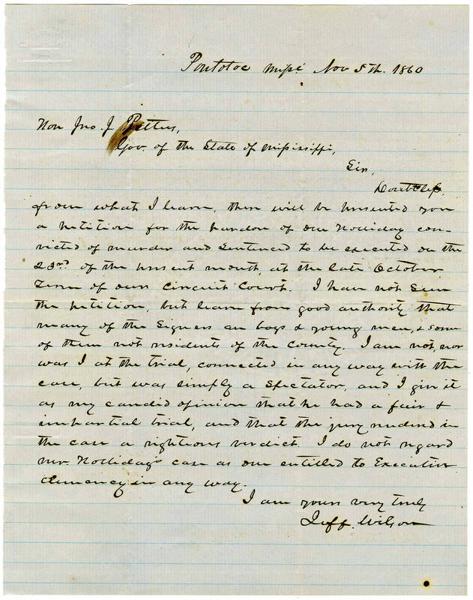 Pontotoc Missi. Nov 5th. 1860
Hon Jno. J. Pettus,
Gov. of the State of Mississippi,
Sir,
Doubtless
from what I learn, there will be presented you
a petition for the pardon of one Holliday con-
victed of murder and sentenced to be executed on the
23rd of the present month, at the late October
Term of our Circuit Court. I have not seen
the petition, but learn from good authority that
many of the signers are boys & young men, & some
of them not residents of the County. I am not, nor
was I at the trial, connected in any way with the
case, but was simply a spectator, and I give it
as my candid opinion that he had a fair &
impartial trial, and that the jury rendered in
the case a righteous verdict. I do not regard
mr. Holliday's case as one entitled to Executive
clemency in any way.
I am yours very truly
Jeff. Wilson